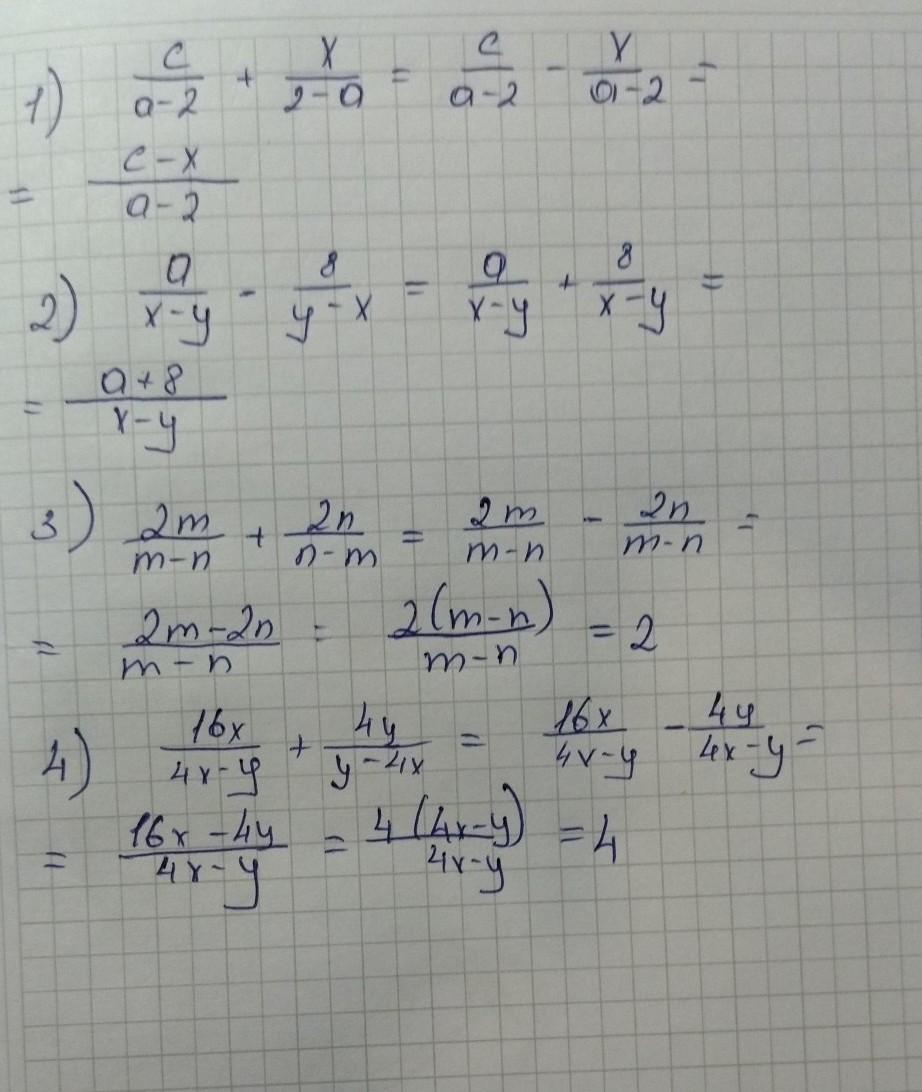 1) c/(a-2) + x/(2-a) = c/(a-2) - x/(a-2) =
= (c-x)/(a-2)
2) a/(x-y) - 8/(y-x) = a/(x-y) + 8/(x-y) =
= (a+8)/(x-y)
3) 2m/(m-n) + 2n/(n-m) = 2m/(m-n) - 2n/(m-n) =
= (2m-2n)/(m-n) = 2(m-n)/(m-n) = 2
4) 16x/(4x-y) + 4y/(y-4x) = 16x/(4x-y) - 4y/(4x-y) =
= (16x-4y)/(4x-y) = 4(4x-y)/(4x-y) = 4